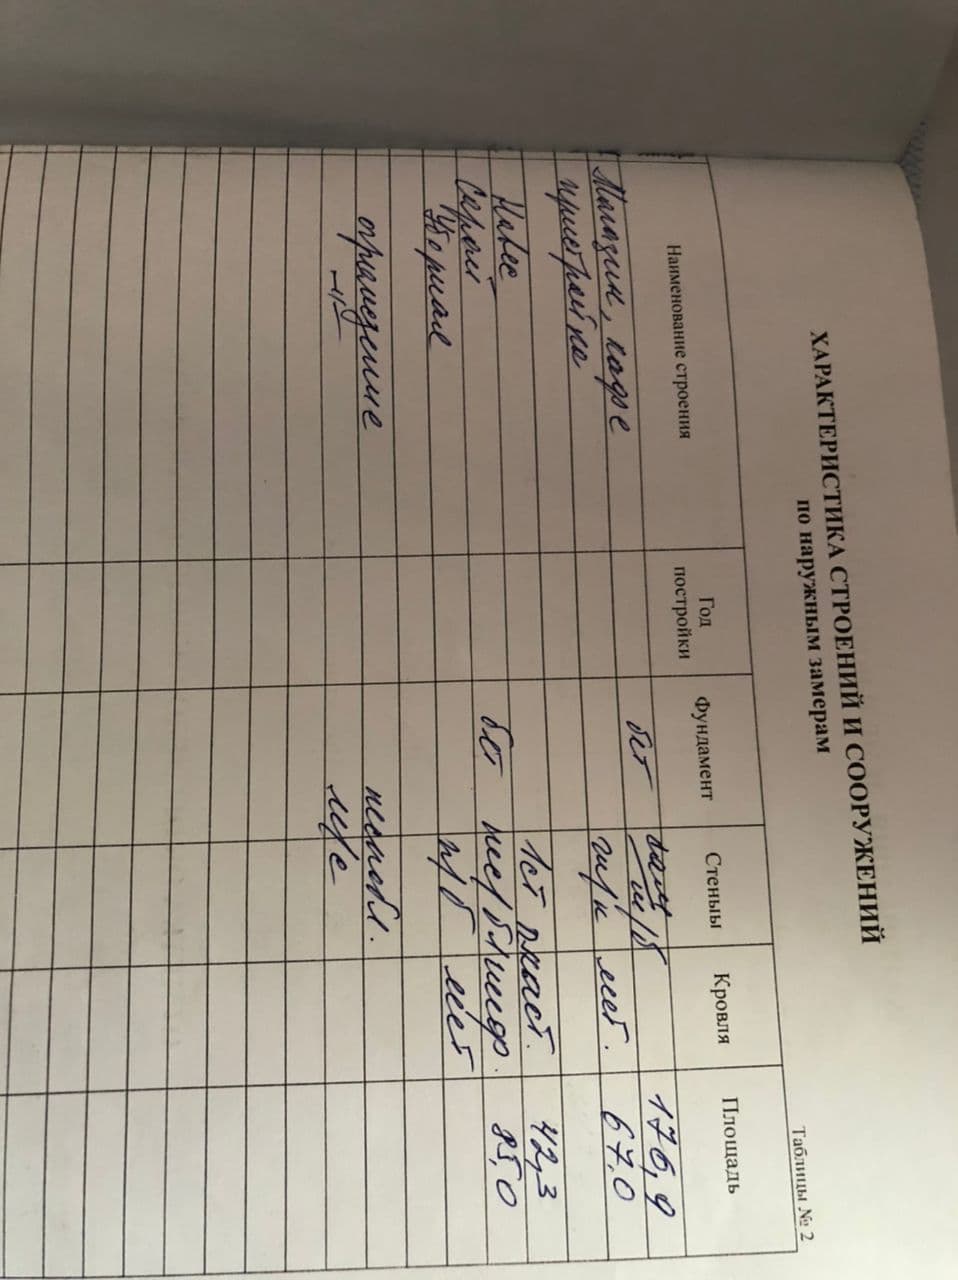 Таблицы № 2
ХАРАКТЕРИСТИКА СТРОЕНИЙ И СООРУЖЕНИЙ
по наружным замерам
Наименование строения Год постройки Фундамент Стеныы Кровля Площадь
Магазин, кафе бет ш/б 176,9
пристройка ш/к мет. 67,0
Навес 1ст пласт. 42,3
Сарай бет пес/бл шиф. 85,0
Уборная п/б мет
ограждение пескобл.
—"— м/с